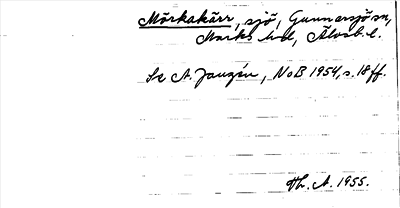 Mörkakärr, sjö, Gunnarsjö sn,
Marks hd, Älvsb. l.
Se A. Janzén, NoB 1954, s. 18 ff.
Th. A. 1955.